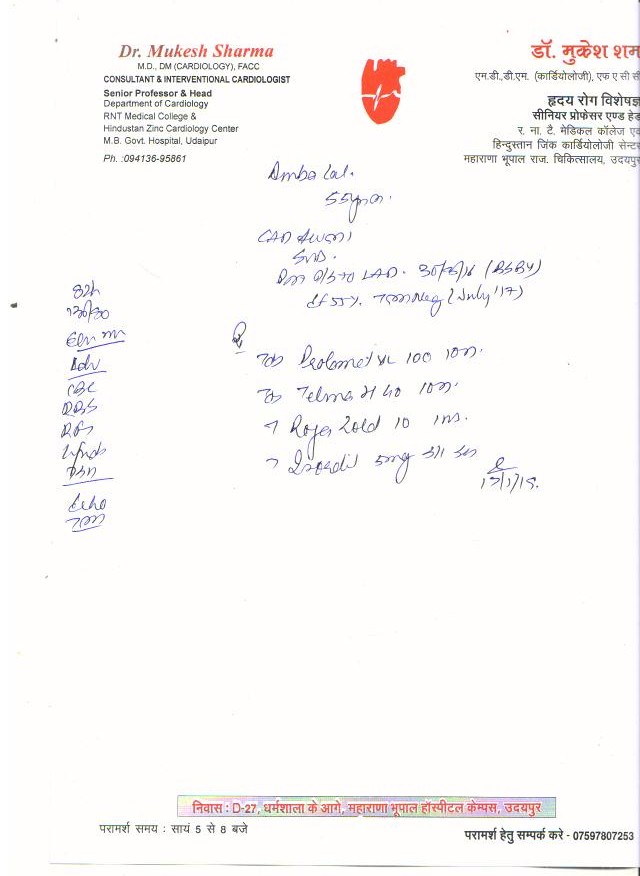 Dr. Mukesh Sharma
M.D., DM (CARDIOLOGY), FACC
CONSULTANT & INTERVENTIONAL CARDIOLOGIST
Senior Professor & Head
Department of Cardiology
RNT Medical College &
Hindustan Zinc Cardiology Center
M.B. Govt. Hospital, Udaipur
Ph. :094136-95861
डॉ. मुकेश शम
एम.डी.,डी.एम. (कार्डियोलॉजी), एफ ए सी सी
हृदय रोग विशेषज्ञ
सीनियर प्रोफेसर एण्ड हेड
र. ना. टै. मेडिकल कॉलेज एव
हिन्दुस्तान जिंक कार्डियोलॉजी सेन्टर
महाराणा भूपाल राज. चिकित्सालय, उदयपुर
Amba Lal.
55yrs
CAD AWMI
SVD.
LAD. (BSBY)
EF 55%. TMT Neg (July '17)
82/
130/80
Adv
CBC
RBS
RFT
Echo
TMT
Rx
Prolomet XL 100
Telma 40
Rozagold 10
Isordil 5mg
निवास : D-27, धर्मशाला के आगे, महाराणा भूपाल हॉस्पीटल केम्पस, उदयपुर
परामर्श समय : सायं 5 से 8 बजे
परामर्श हेतु सम्पर्क करे - 07597807253